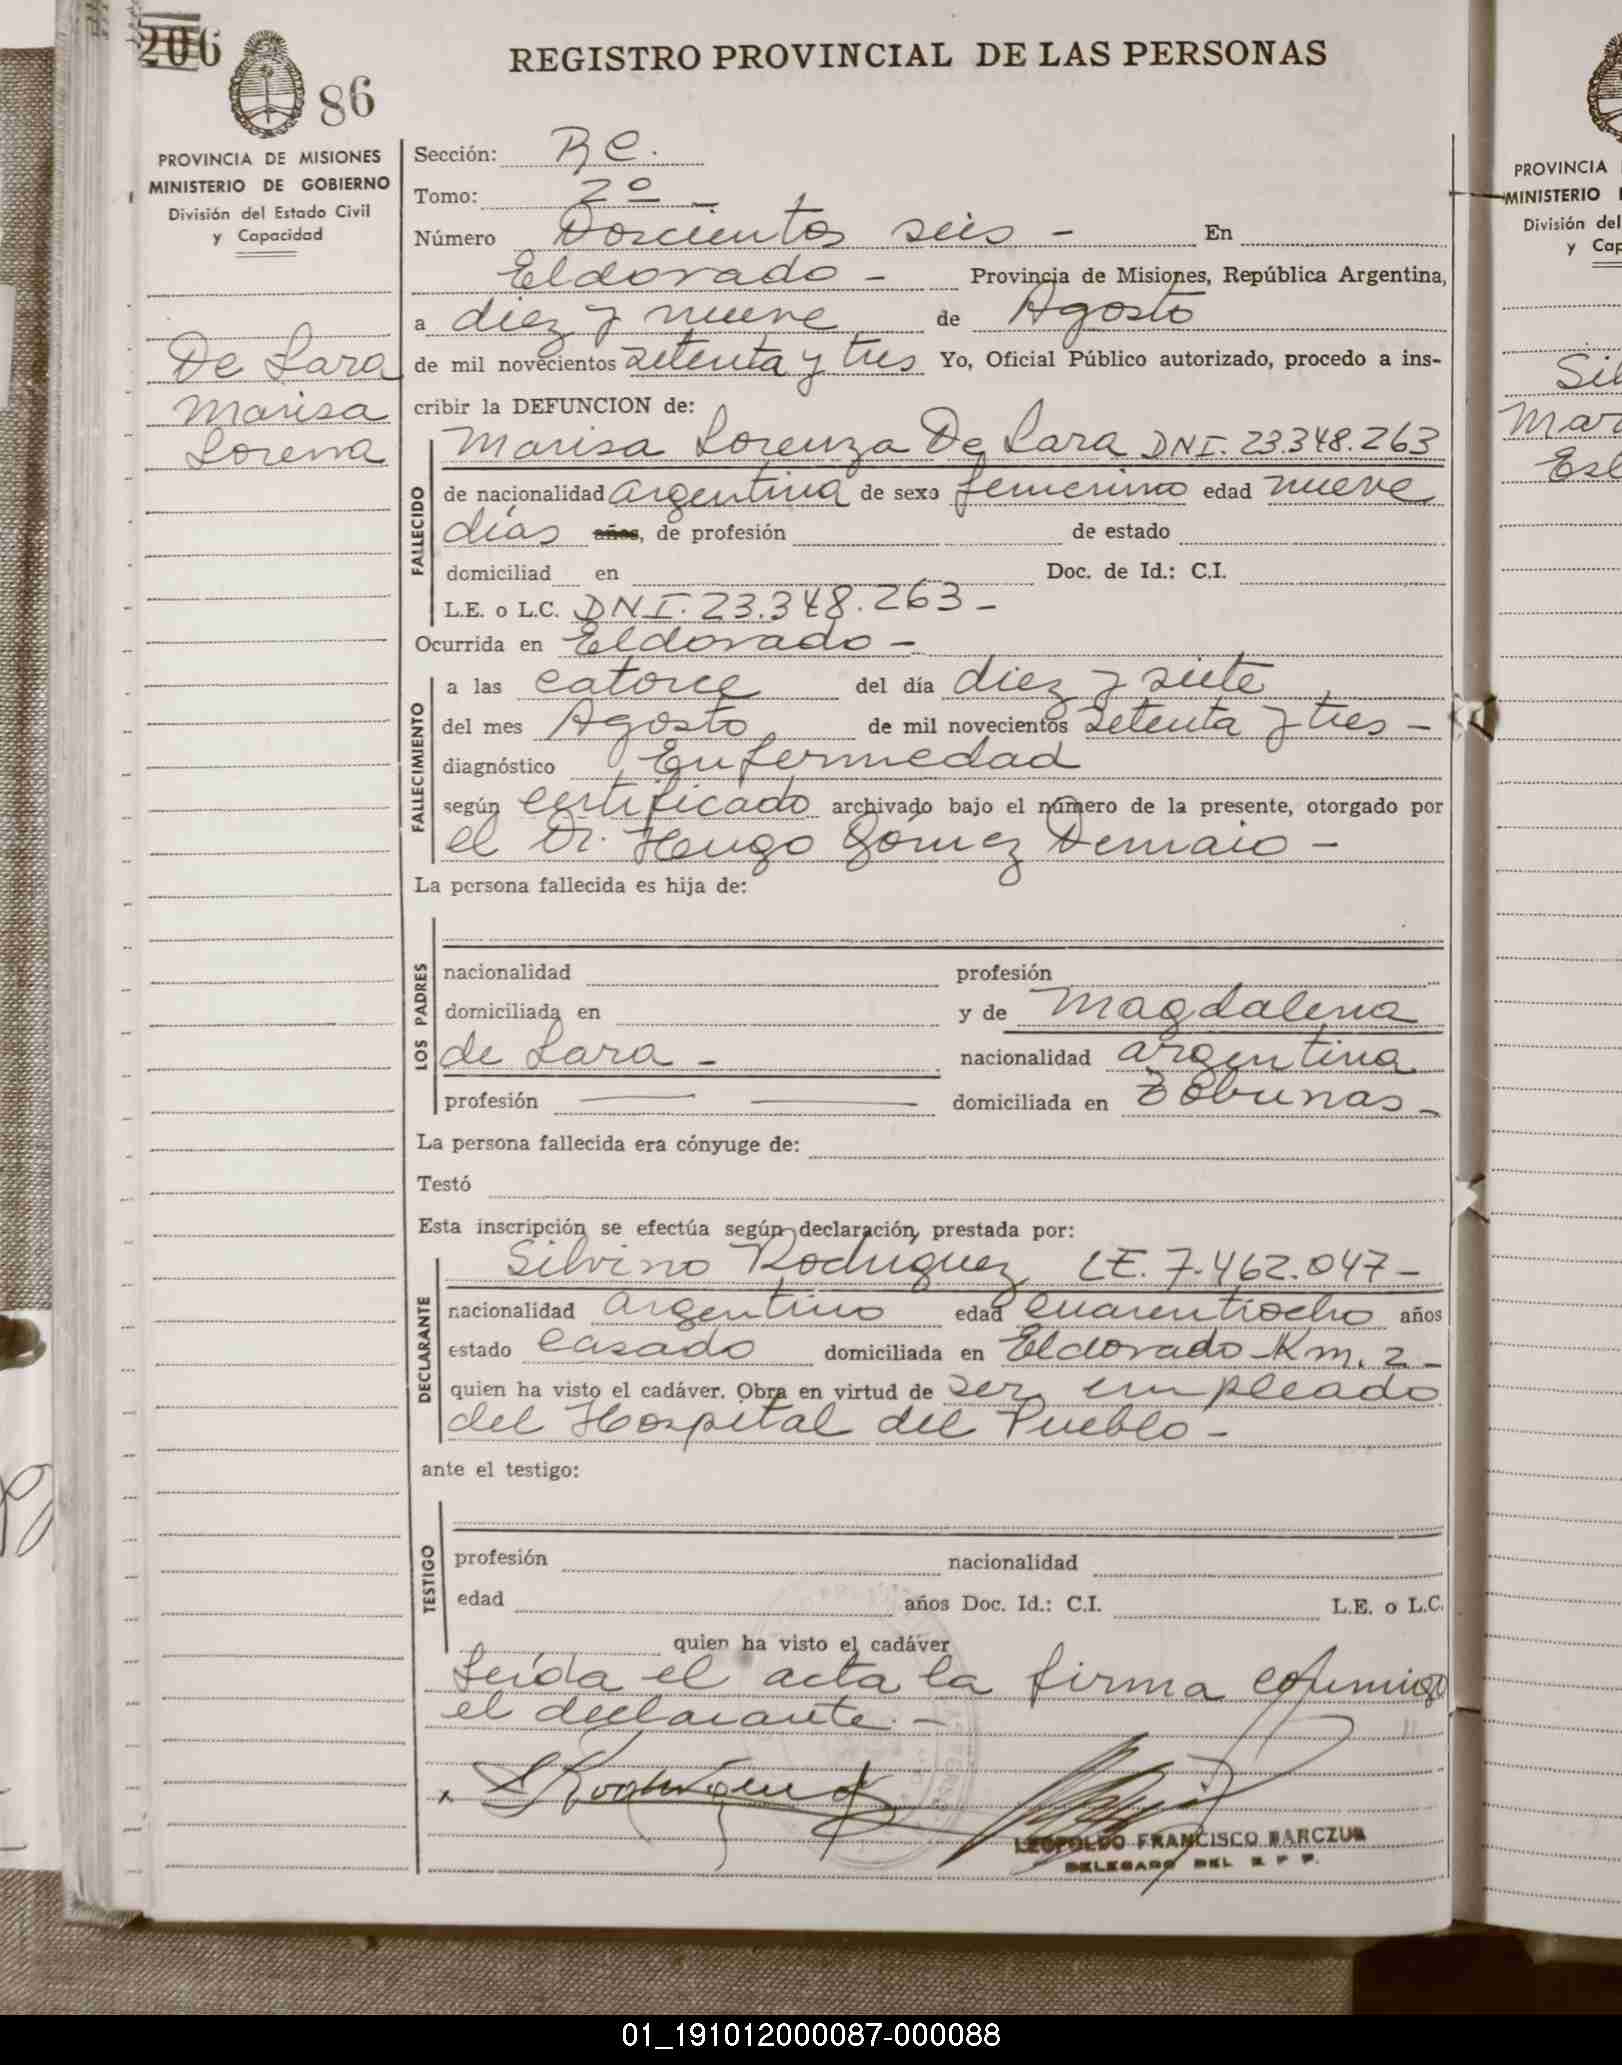 206
86
REGISTRO PROVINCIAL DE LAS PERSONAS
PROVINCIA DE MISIONES
MINISTERIO DE GOBIERNO
División del Estado Civil
y Capacidad
De Lara
Marisa
Lorena
Sección: R C.
Tomo: 2º -
Número Doscientos seis - En
Eldorado - Provincia de Misiones, República Argentina,
a diez y nueve de Agosto
de mil novecientos setenta y tres Yo, Oficial Público autorizado, procedo a ins-
cribir la DEFUNCION de:
FALLECIDO
Marisa Lorenza De Lara DNI. 23.348.263
de nacionalidad argentina de sexo femenino edad nueve
días años, de profesión de estado
domiciliad en Doc. de Id.: C.I.
L.E. o L.C. DNI. 23.348.263 -
Ocurrida en Eldorado -
FALLECIMIENTO
a las catorce del día diez y siete
del mes Agosto de mil novecientos setenta y tres -
diagnóstico Enfermedad
según certificado archivado bajo el número de la presente, otorgado por
el Dr. Hugo Gómez Demaio -
La persona fallecida es hija de:
LOS PADRES
nacionalidad profesión
domiciliada en y de Magdalena
de Lara - nacionalidad argentina
profesión domiciliada en
La persona fallecida era cónyuge de:
Testó
Esta inscripción se efectúa según declaración, prestada por:
DECLARANTE
Silvino Rodriguez LE. 7.462.047 -
nacionalidad argentino edad cuarentiocho años
estado casado domiciliada en Eldorado Km. 2 -
quien ha visto el cadáver. Obra en virtud de ser empleado
del Hospital del Pueblo -
ante el testigo:
TESTIGO
profesión nacionalidad
edad años Doc. Id.: C.I. L.E. o L.C.
quien ha visto el cadáver
Leída el acta la firma conmigo
el declarante. -
LEOPOLDO FRANCISCO BARCZUK
DELEGADO DEL R P P.
PROVINCIA
MINISTERIO
División del
y Cap
Sil
Mar
01_191012000087-000088